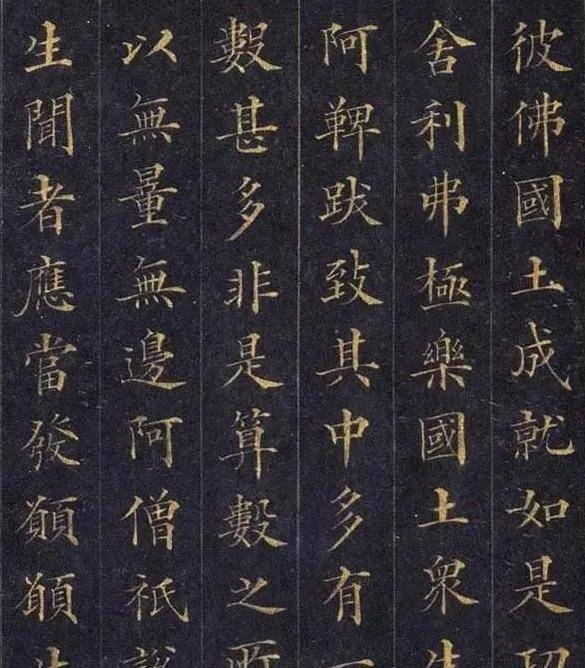 彼佛國土成就如是
舍利弗極樂國土衆生
阿鞞跋致其中多有一
數甚多非是算數之所
以無量無邊阿僧祇説
生聞者應當發願願生